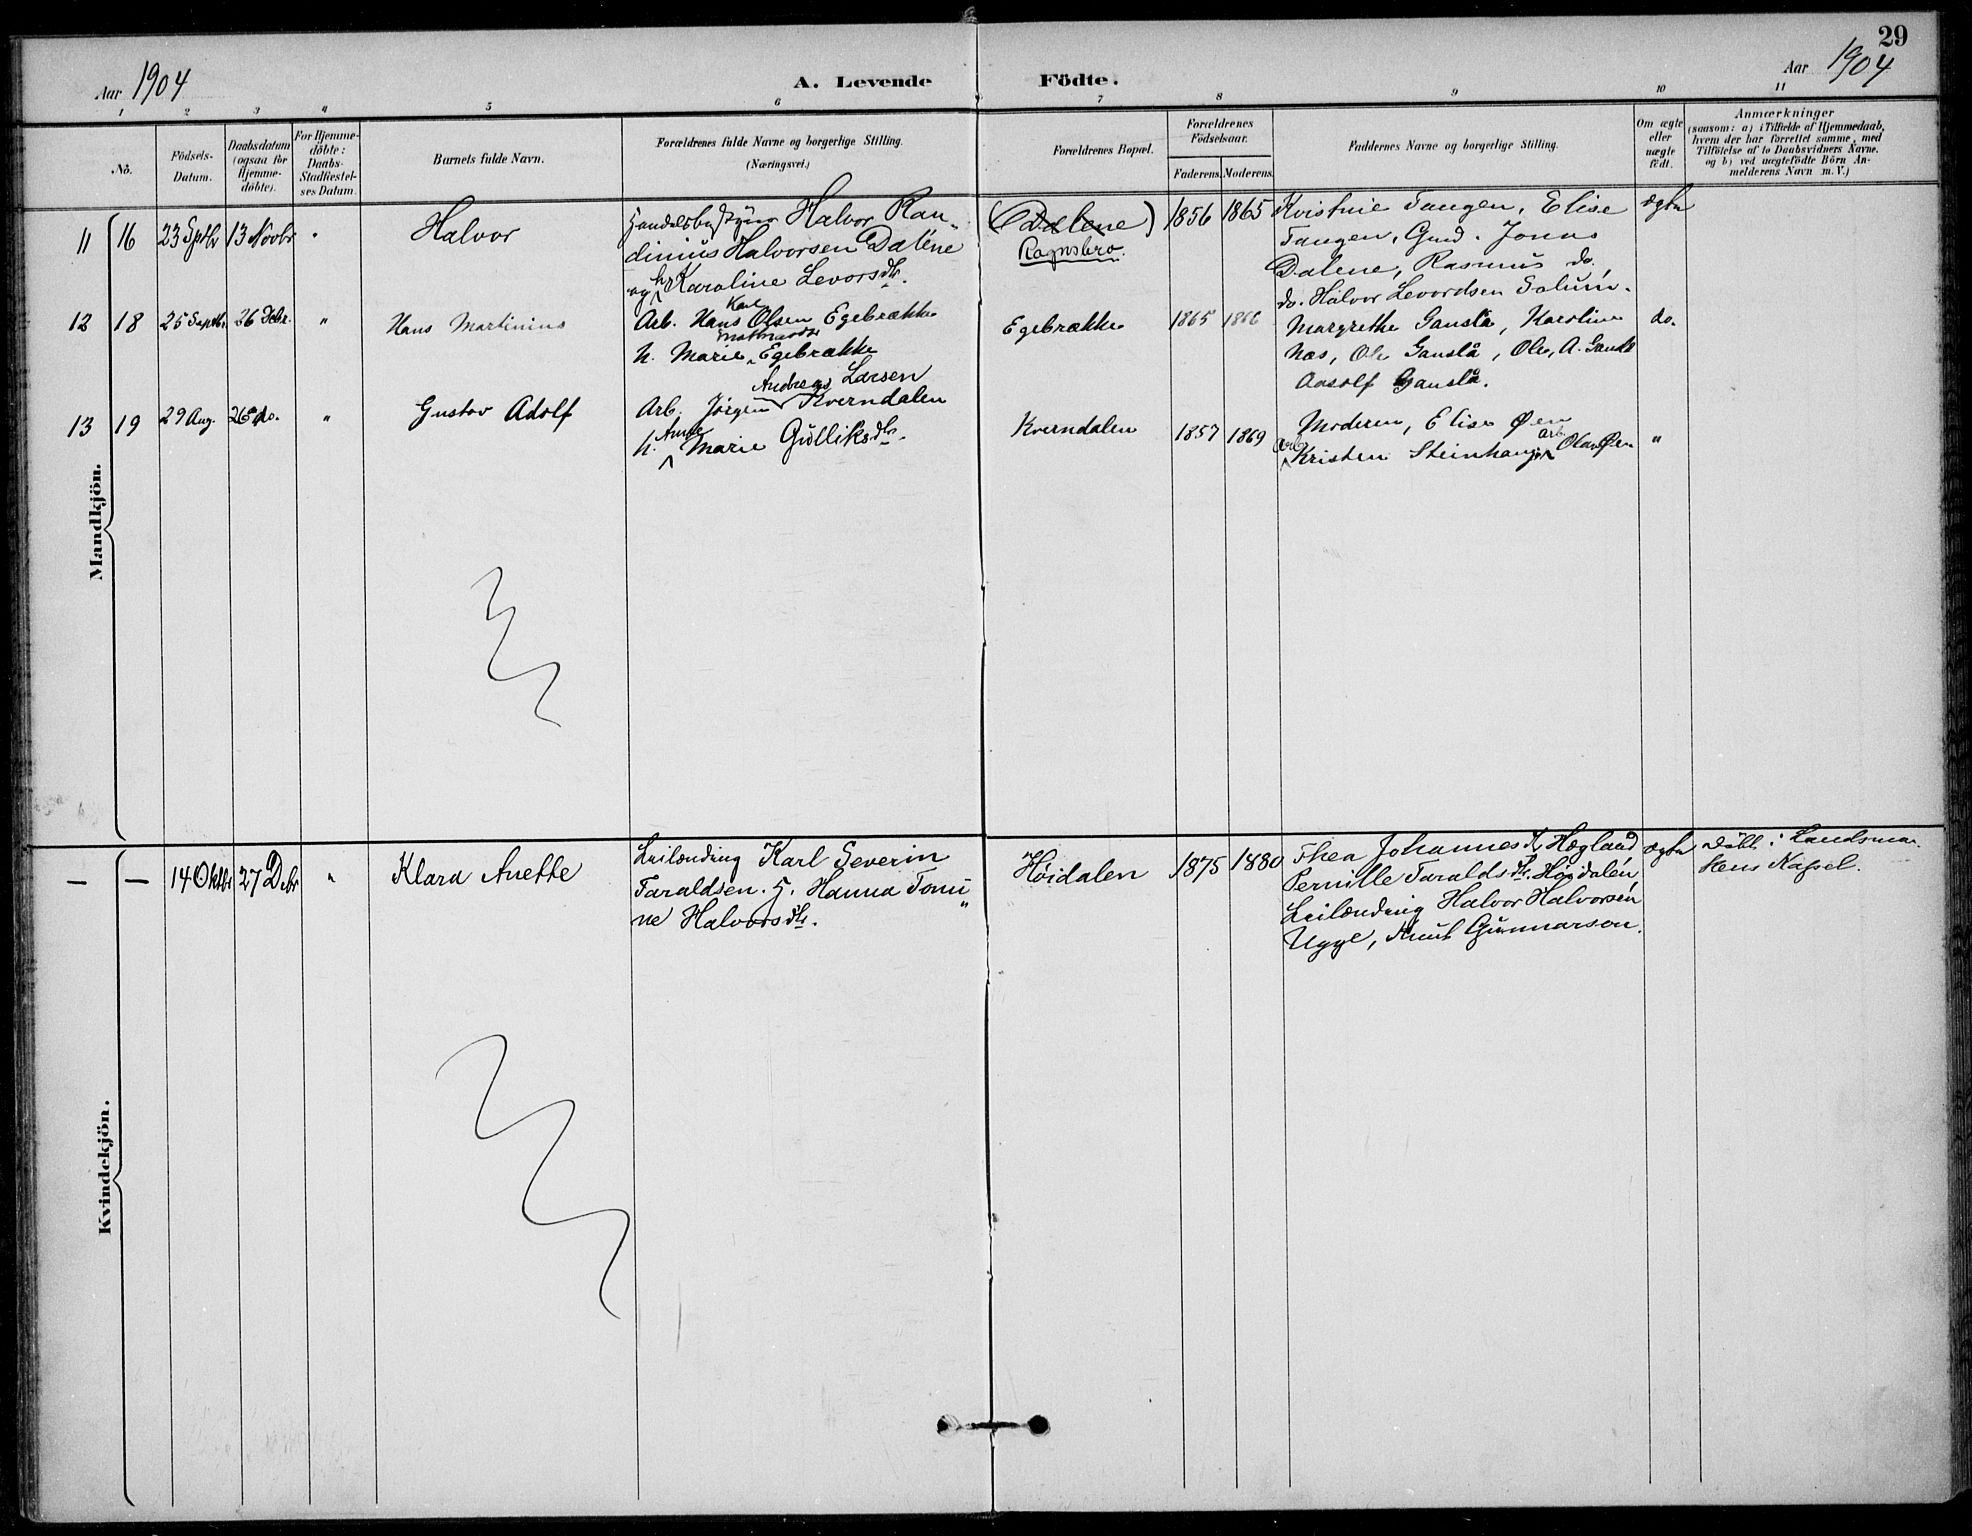 29
Aar 1904
A. Levende Födte.
Aar 1904
1 2 3 4 5 6 7 8 9 10 11
No.
Födsels-Datum.
Daabsdatum (ogsaa for Hjemme-döbte).
For Hjemme-döbte: Daabs-Stadfestel-ses Datum.
Barnets fulde Navn.
Forældrenes fulde Navne og borgerlige Stilling.
(Næringsvei.)
Forældrenes Bopæl.
Forældrenes Födselsaar.
Faderens. Moderens.
Faddernes Navne og borgerlige Stilling.
Om ægte eller uægte födt.
Anmærkninger
(saasom: a) i Tilfælde af Hjemmedaab,
hvem der har forrettet samme, med
Tilföielse af to Daabsvidners Navne.
og b) ved uægtefödte Börn An-
melderens Navn m. V.)
Mandkjön.
11 16 23 Sptbr 13 Novbr " Halvor
Halvor Ran-
dinius Halvorsen Dalene
og h. Karoline Levorsdtr.
(Dalene)
Ragnsbro.
1856 1865
Kristine Tangen, Elise
Tangen, Gmd. Jonas
Dalene, Rasmus do.
do. Halvor Levordsen Solum.
ægte
12 18 25 Septbr. 26 Decbr. " Hans Martinius
Karl
Arb. Hans Olsen Egebrække
h. Marie Egebrække
Egebrække
1865 1866
Margrethe Ganslå, Karoline
Næs, Ole Ganslå, Ole A.
Aasolf Ganslå.
do.
13 19 29 Aug. 26 do. " Gustav Adolf
Andreas Larsen
Arb. Jörgen Kverndalen
Anne
h. Marie Gulliksdtr.
Kverndalen
1857 1869
Moderen, Elise Øen
Arb. Kristen Steinhaug, Arb. Olav Øen
"
Kvindekjön.
— — 14 Oktbr 27 Debr " Klara Anette
Leilænding Karl Severin
Taraldsen. H. Hanna Tomi-
ne Halvorsdtr.
Höidalen
1875 1880
Thea Johannesdtr Hægland
Pernille Taraldsdtr. Högdalen
Leilænding Halvor Halvorsen
Ugge, Knut Gunnarson.
ægte
Döbt i Landsmar-
kens Kapel.